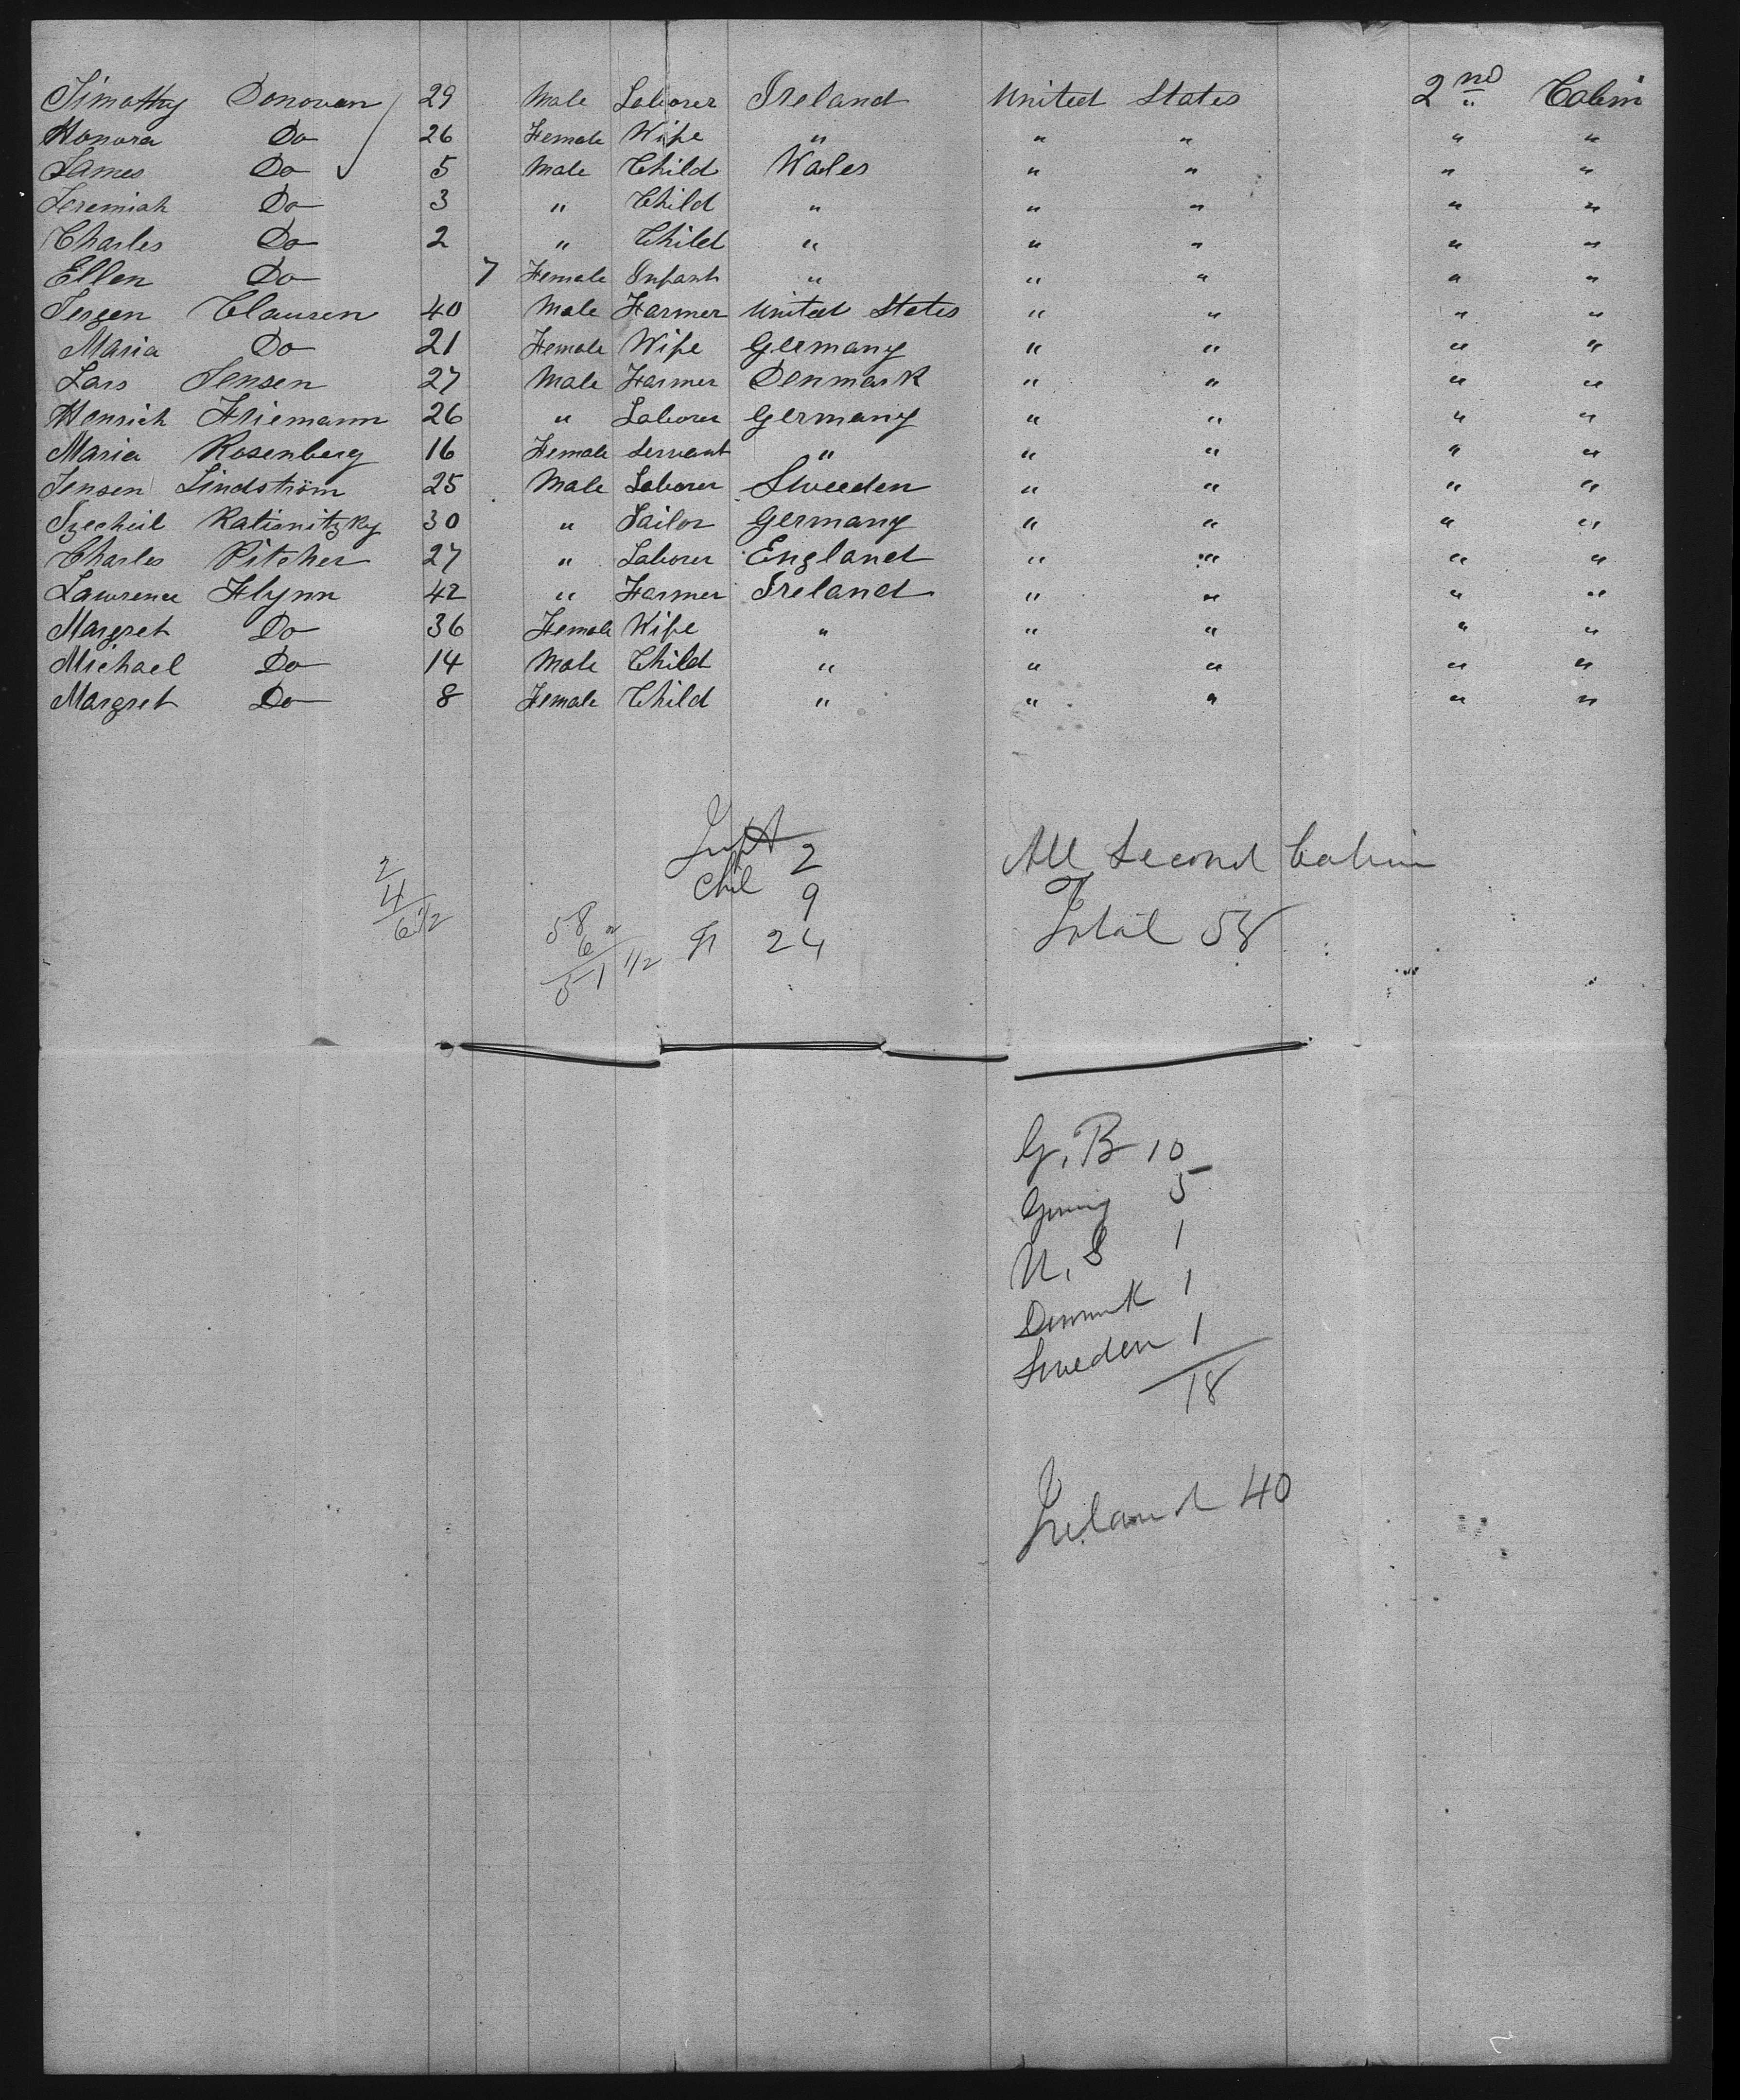 Timothy Donovan 29 Male Laborer Ireland United States 2nd Cabin
Honora Do 26 Female Wife " " " " "
James Do 5 Male Child Wales " " " "
Jeremiah Do 3 " Child " " " " "
Charles Do 2 " Child " " " " "
Ellen Do 7 Female Infant " " " " "
Jergen Clausen 40 Male Farmer United States " " " "
Maria Do 21 Female Wife Germany " " " "
Lars Jensen 27 Male Farmer Denmark " " " "
Henrich Friemann 26 " Laborer Germany " " " "
Maria Rosenberg 16 Female Servant " " " " "
Jensen Lindström 25 Male Laborer Sweeden " " " "
30 " Tailor Germany " " " "
Charles Pitcher 27 " Laborer England " " " "
Lawrence Flynn 42 " Farmer Ireland " " " "
Margret Do 36 Female Wife " " " " "
Michael Do 14 Male Child " " " " "
Margret Do 8 Female Child " " " " "
Inft 2 All Second Cabin
2
4
6 1/2
Chil 9
58
6
51 1/2
24 Total 58
G. B 10
Germy 5
U. S 1
Denmark 1
Sweden 1
18
Ireland 40